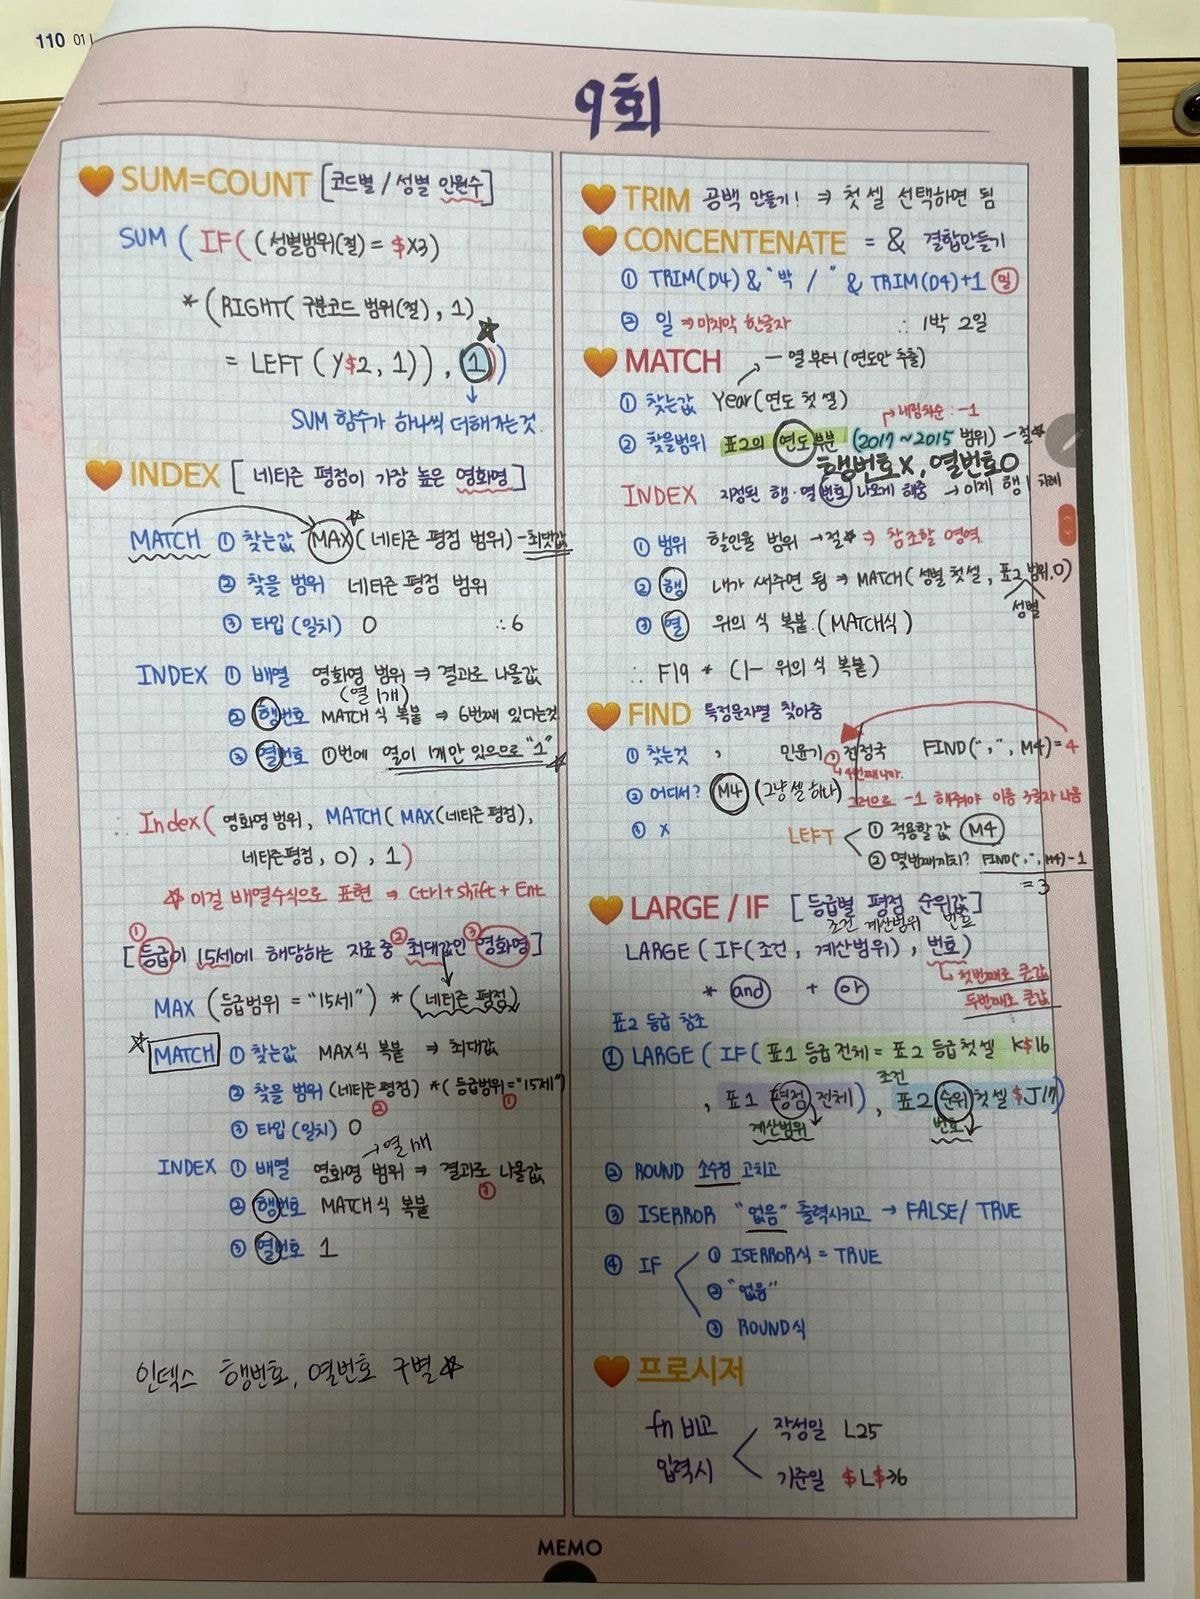 110 01
9회
SUM=COUNT [코드별 / 성별 인원수]
SUM ( IF( (성별범위(절) = $X3)
* (RIGHT( 구분코드 범위(절) , 1)
= LEFT ( Y$2, 1)) , 1))
SUM 함수가 하나씩 더해지는것.
INDEX [ 네티즌 평점이 가장 높은 영화명 ]
MATCH ① 찾는값 MAX( 네티즌 평점 범위) - 최댓값
② 찾을 범위 네티즌 평점 범위
③ 타입 (일치) 0 ∴ 6
INDEX ① 배열 영화명 범위 ⇒ 결과로 나올값
(열 1개)
② 행번호 MATCH 식 복붙 ⇒ 6번째 있다는것
③ 열번호 ①번에 열이 1개만 있으므로 "1"
∴ Index( 영화명 범위, MATCH( MAX(네티즌 평점),
네티즌평점, 0) , 1)
☆ 이걸 배열수식으로 표현 ⇒ Ctrl + Shift + Ent
① ② ③
[ 등급이 15세에 해당하는 자료 중 최대값인 영화명 ]
MAX (등급범위 = "15세") * (네티즌 평점)
MATCH ① 찾는값 MAX식 복붙 ⇒ 최대값
② 찾을 범위 (네티즌 평점) * ( 등급범위="15세")
② ①
③ 타입 (일치) 0
→ 열 1개
INDEX ① 배열 영화명 범위 ⇒ 결과로 나올값
③
② 행번호 MATCH식 복붙
③ 열번호 1
인덱스 행번호, 열번호 구별☆
TRIM 공백 만들기! ⇒ 첫 셀 선택하면 됨
CONCENTENATE = & 결합만들기
① TRIM(D4) & "박 / " & TRIM(D4)+1 일
② 일 ⇒ 마지막 한글자 ∴ 1박 2일
MATCH
— 열 부터 (연도만 추출)
① 찾는값 Year(연도 첫 셀)
→ 내림차순 : -1
② 찾을범위 표2의 연도부분 (2017 ~ 2015 범위) — 절☆
행번호X, 열번호O
INDEX 지정된 행·열 번호 나오게 해줌 → 이제 행 차례
① 범위 할인율 범위 → 절☆ ⇒ 참조할 영역
② 행 내가 써주면 됨 ⇒ MATCH( 성별 첫 셀, 표2 범위,0)
성별
③ 열 위의 식 복붙. (MATCH식)
∴ F19 * (1- 위의 식 복붙)
FIND 특정문자열 찾아줌
① 찾는것 , 민윤기 , 전정국 FIND(",", M4)=4
4번째니까.
② 어디서? M4 (그냥 셀 하나) 그러므로 -1 해줘야 이름 3글자 나옴
③ X
LEFT ① 적용할 값 M4
② 몇번째까지? FIND(",", M4)-1
= 3
LARGE / IF [ 등급별 평점 순위값 ]
조건 계산범위 번호
LARGE ( IF( 조건 , 계산범위) , 번호)
첫번째로 큰값
* and + or
두번째로 큰값
표2 등급 참조
① LARGE ( IF( 표1 등급 전체 = 표2 등급 첫 셀 K$16
조건
, 표1 평점 전체) , 표2 순위 첫 셀 $J17)
계산범위 번호
② ROUND 소수점 고치고
③ ISERROR "없음" 출력시키고 → FALSE / TRUE
④ IF ① ISERROR식 = TRUE
② "없음"
③ ROUND식
프로시저
fn 비고 작성일 L25
입력시 기준일 $L$36
MEMO